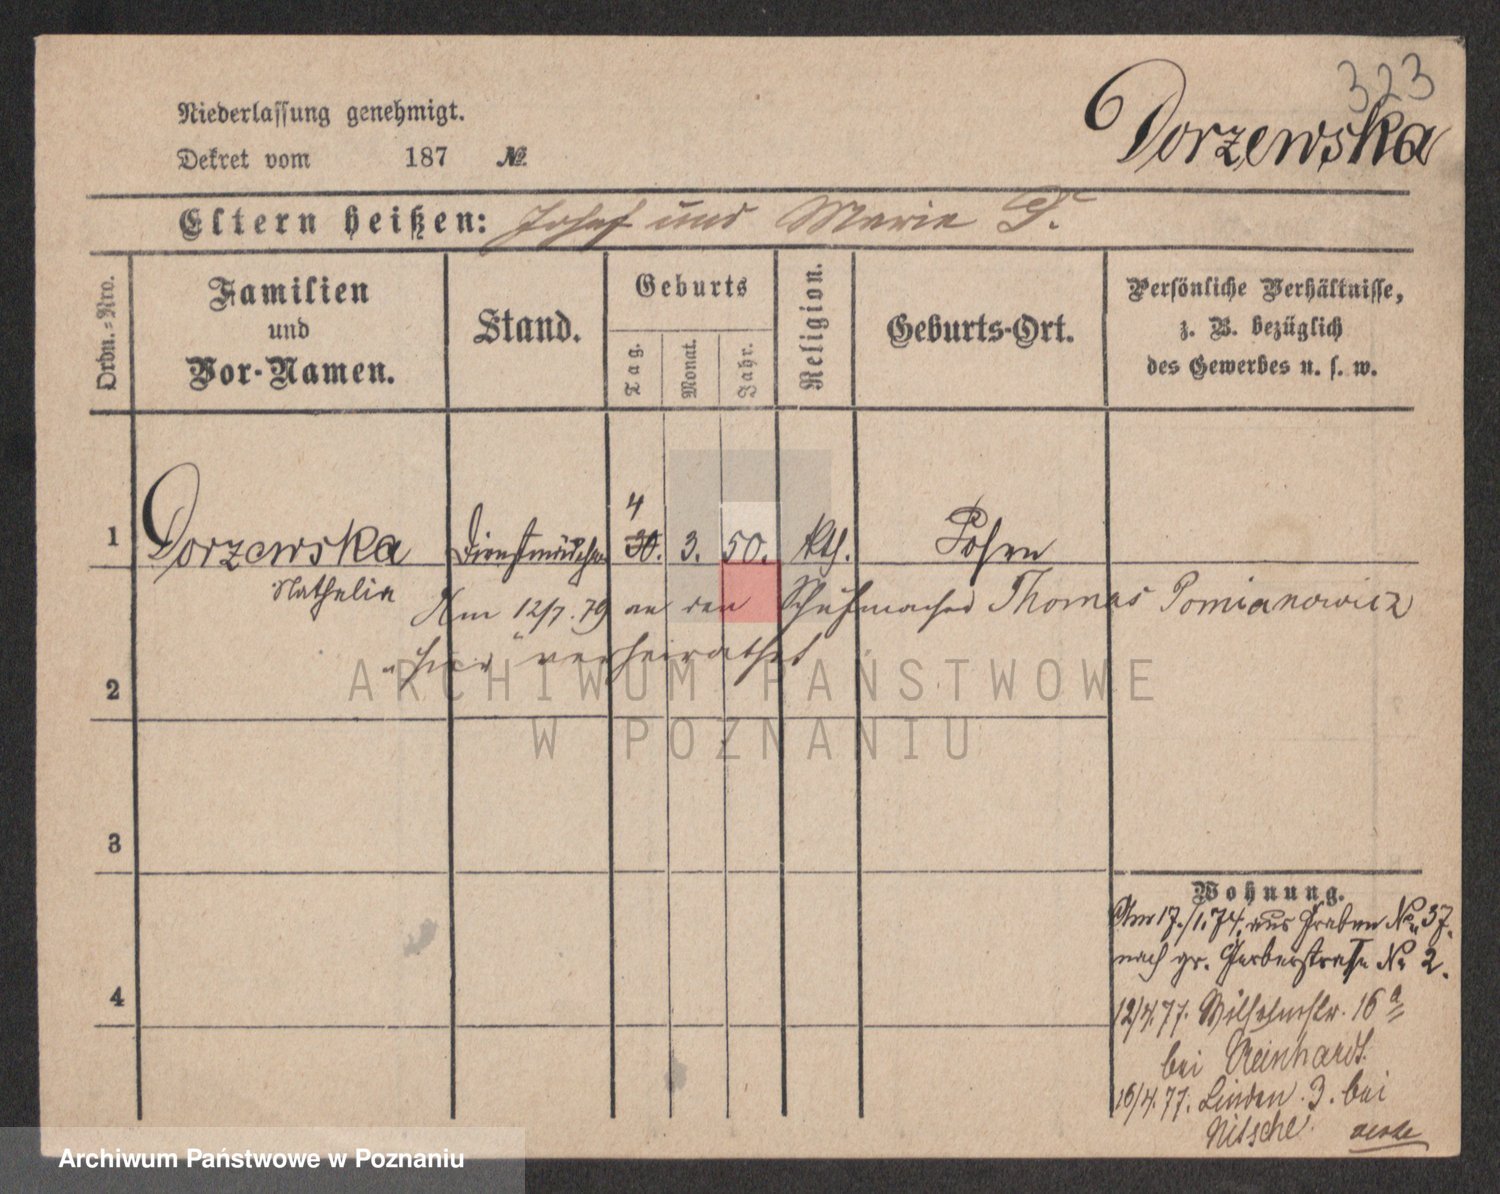 323
Dorzewska
Niederlassung genehmigt.
Dekret vom 187 №
Eltern heißen: Josef und Marie D.
Ordn.-Nro.
Familien
und
Vor-Namen.
Stand.
Geburts
Tag.
Monat.
Jahr.
Religion.
Geburts-Ort.
Persönliche Verhältnisse,
z. B. bezüglich
des Gewerbes u. s. w.
4
1 Dorzewska Dienstmädchen 30. 3. 50. kth. Posen
Nathalie
Am 12/7. 79 an den Schuhmacher Thomas Pomianowicz
hier verheirathet
2
3
4
Wohnung.
Am 17./1. 74. aus Graben No. 37.
nach gr. Gerberstraße No 2.
12/4. 77. Wilhelmstr. 16 a
bei Reinhardt.
16/4. 77. Linden 3. bei
Nitsche.
ARCHIWUM PAŃSTWOWE
W POZNANIU
Archiwum Państwowe w Poznaniu